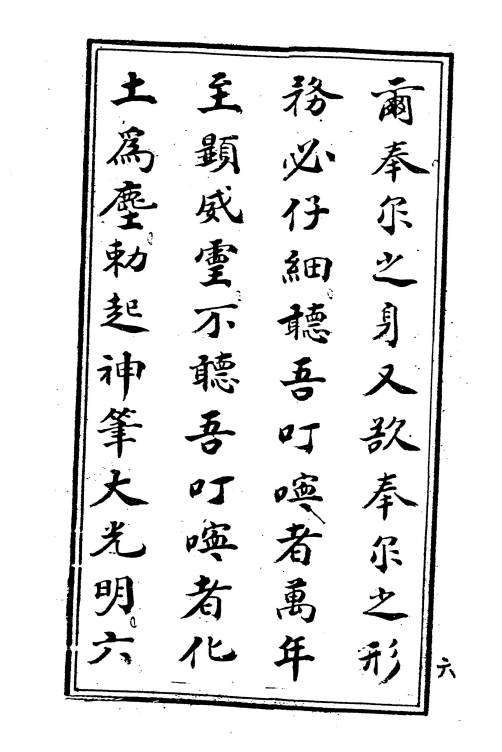 爾奉尔之身又欲奉尔之形
務必仔細聽吾叮嚀者萬年
主顯威靈不聽吾叮嚀者化
土為塵勅起神筆大光明六
六